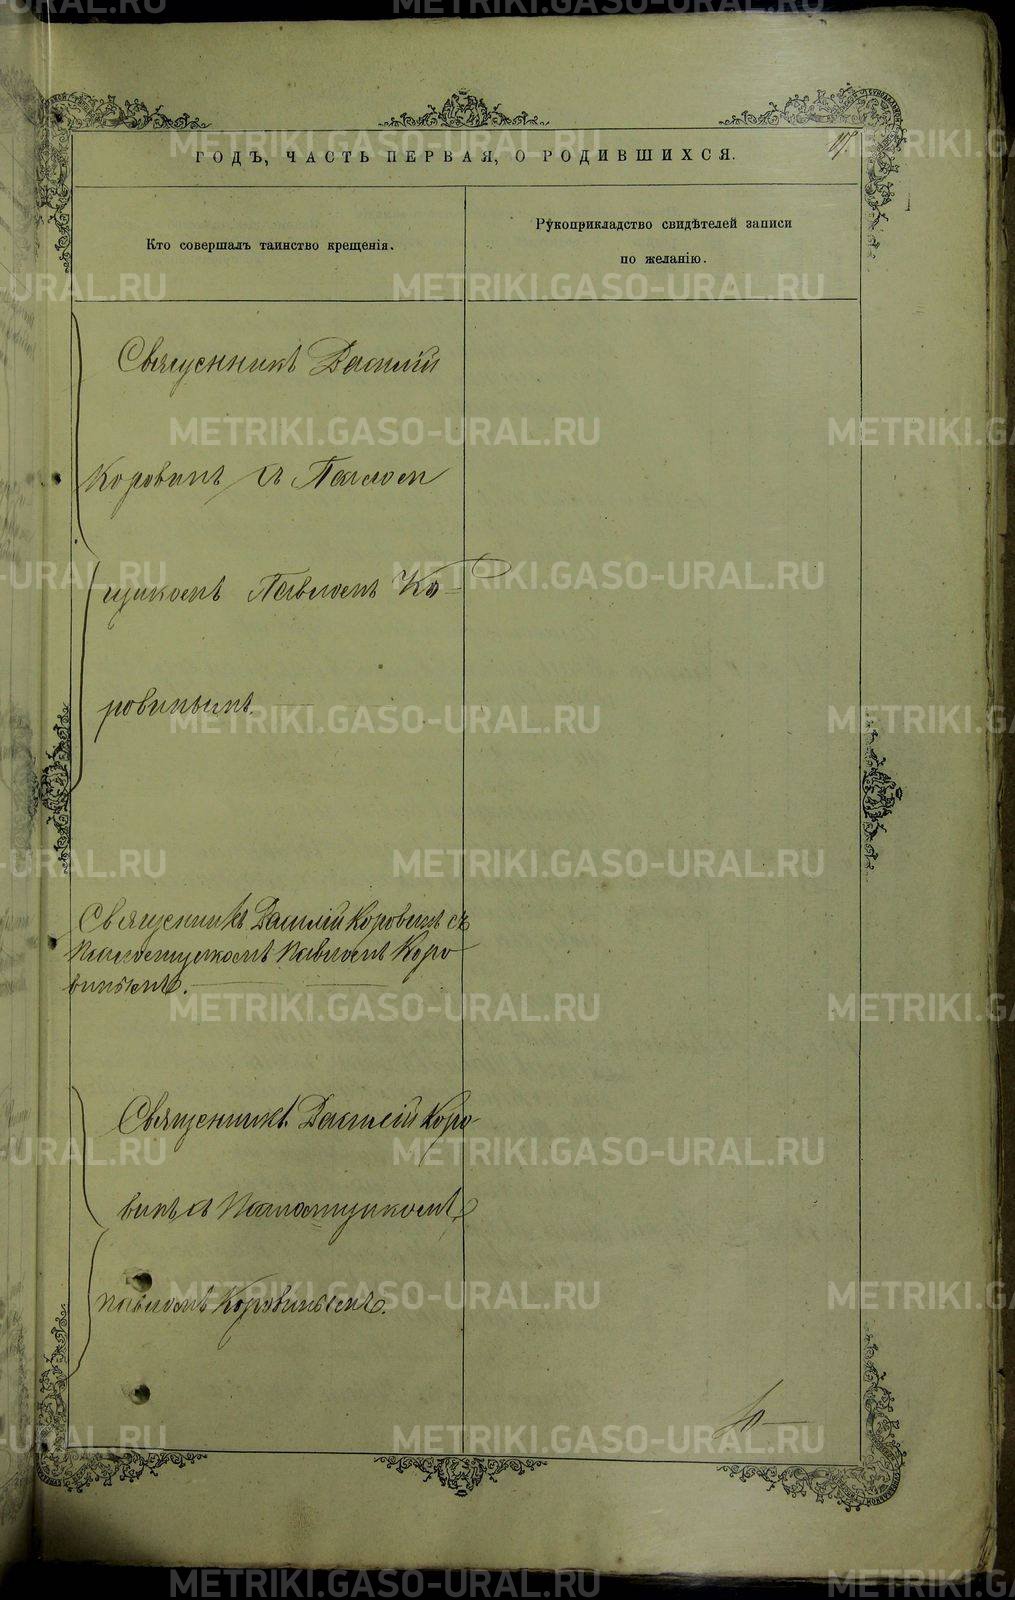 ГОДЪ, ЧАСТЬ ПЕРВАЯ, О РОДИВШИХСЯ.
Кто совершалъ таинство крещенія.
Рукоприкладство свидѣтелей записи
по желанію.
Священникъ Василій
Коровинъ съ Псалом
щикомъ Павломъ Ко-
ровинымъ.
Священникъ Василій Коровинъ съ
Псаломщикомъ Павломъ Коро
винымъ.
Священникъ Василій Коро
винъ съ Псаломщикомъ
Павломъ Коровинымъ.
METRIKI.GASO-URAL.RU